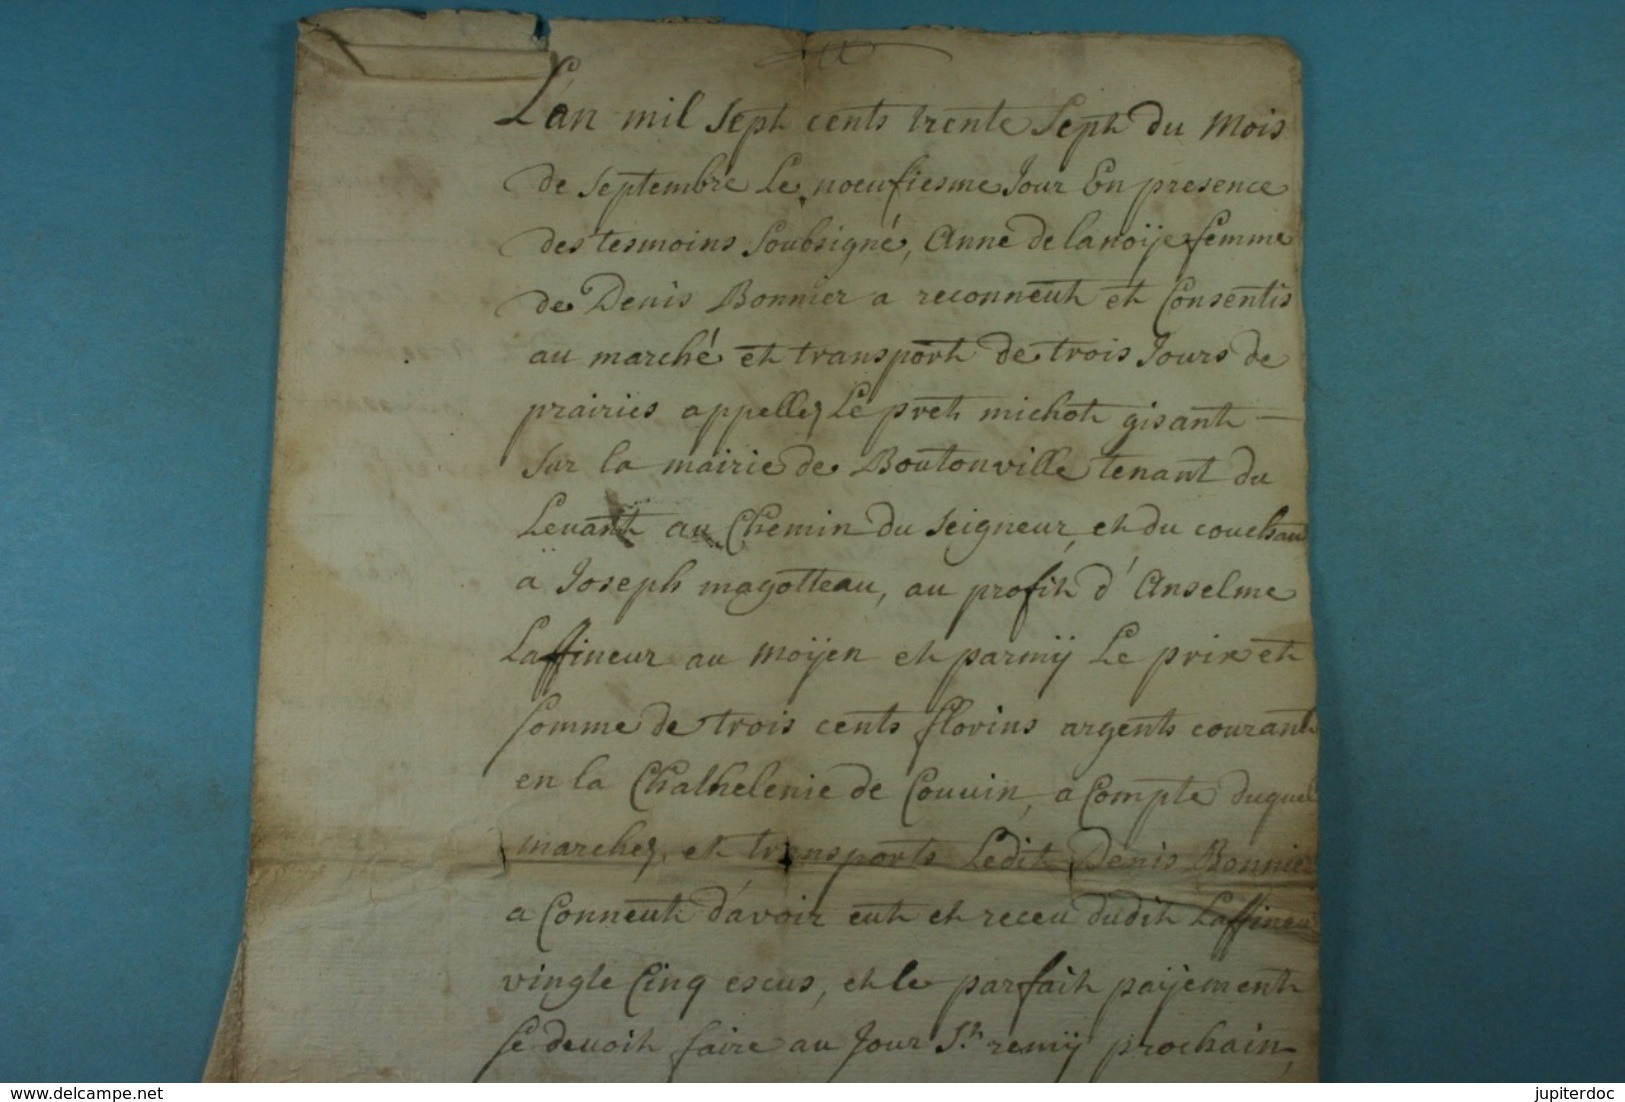 L'an mil sept cents trente sept du mois
de septembre le noeufiesme jour En presence
des tesmoins soubsigné, Anne de lanoÿe femme
de Denis Bonnier a reconneut et Consentis
au marché et transport de trois Jours de
prairies appellez Le pret michot gisant
sur la mairie de Boutonville tenant du
Levant au Chemin du seigneur, et du couchan
a Joseph magotteau, au profit d'Anselme
Laffineur au moÿen et parmÿ Le prix et
somme de trois cents florins argents courant
en la Chathelenie de Couuin, a Compte duquel
marchez, et transports Ledit Denis Bonnier
a Conneut d'avoir eut et receu dudit Laffineu
vingte Cinq escus, et le parfait paÿement
se deuoit faire au Jour St remÿ prochain,
delcampe.net
jupiterdoc